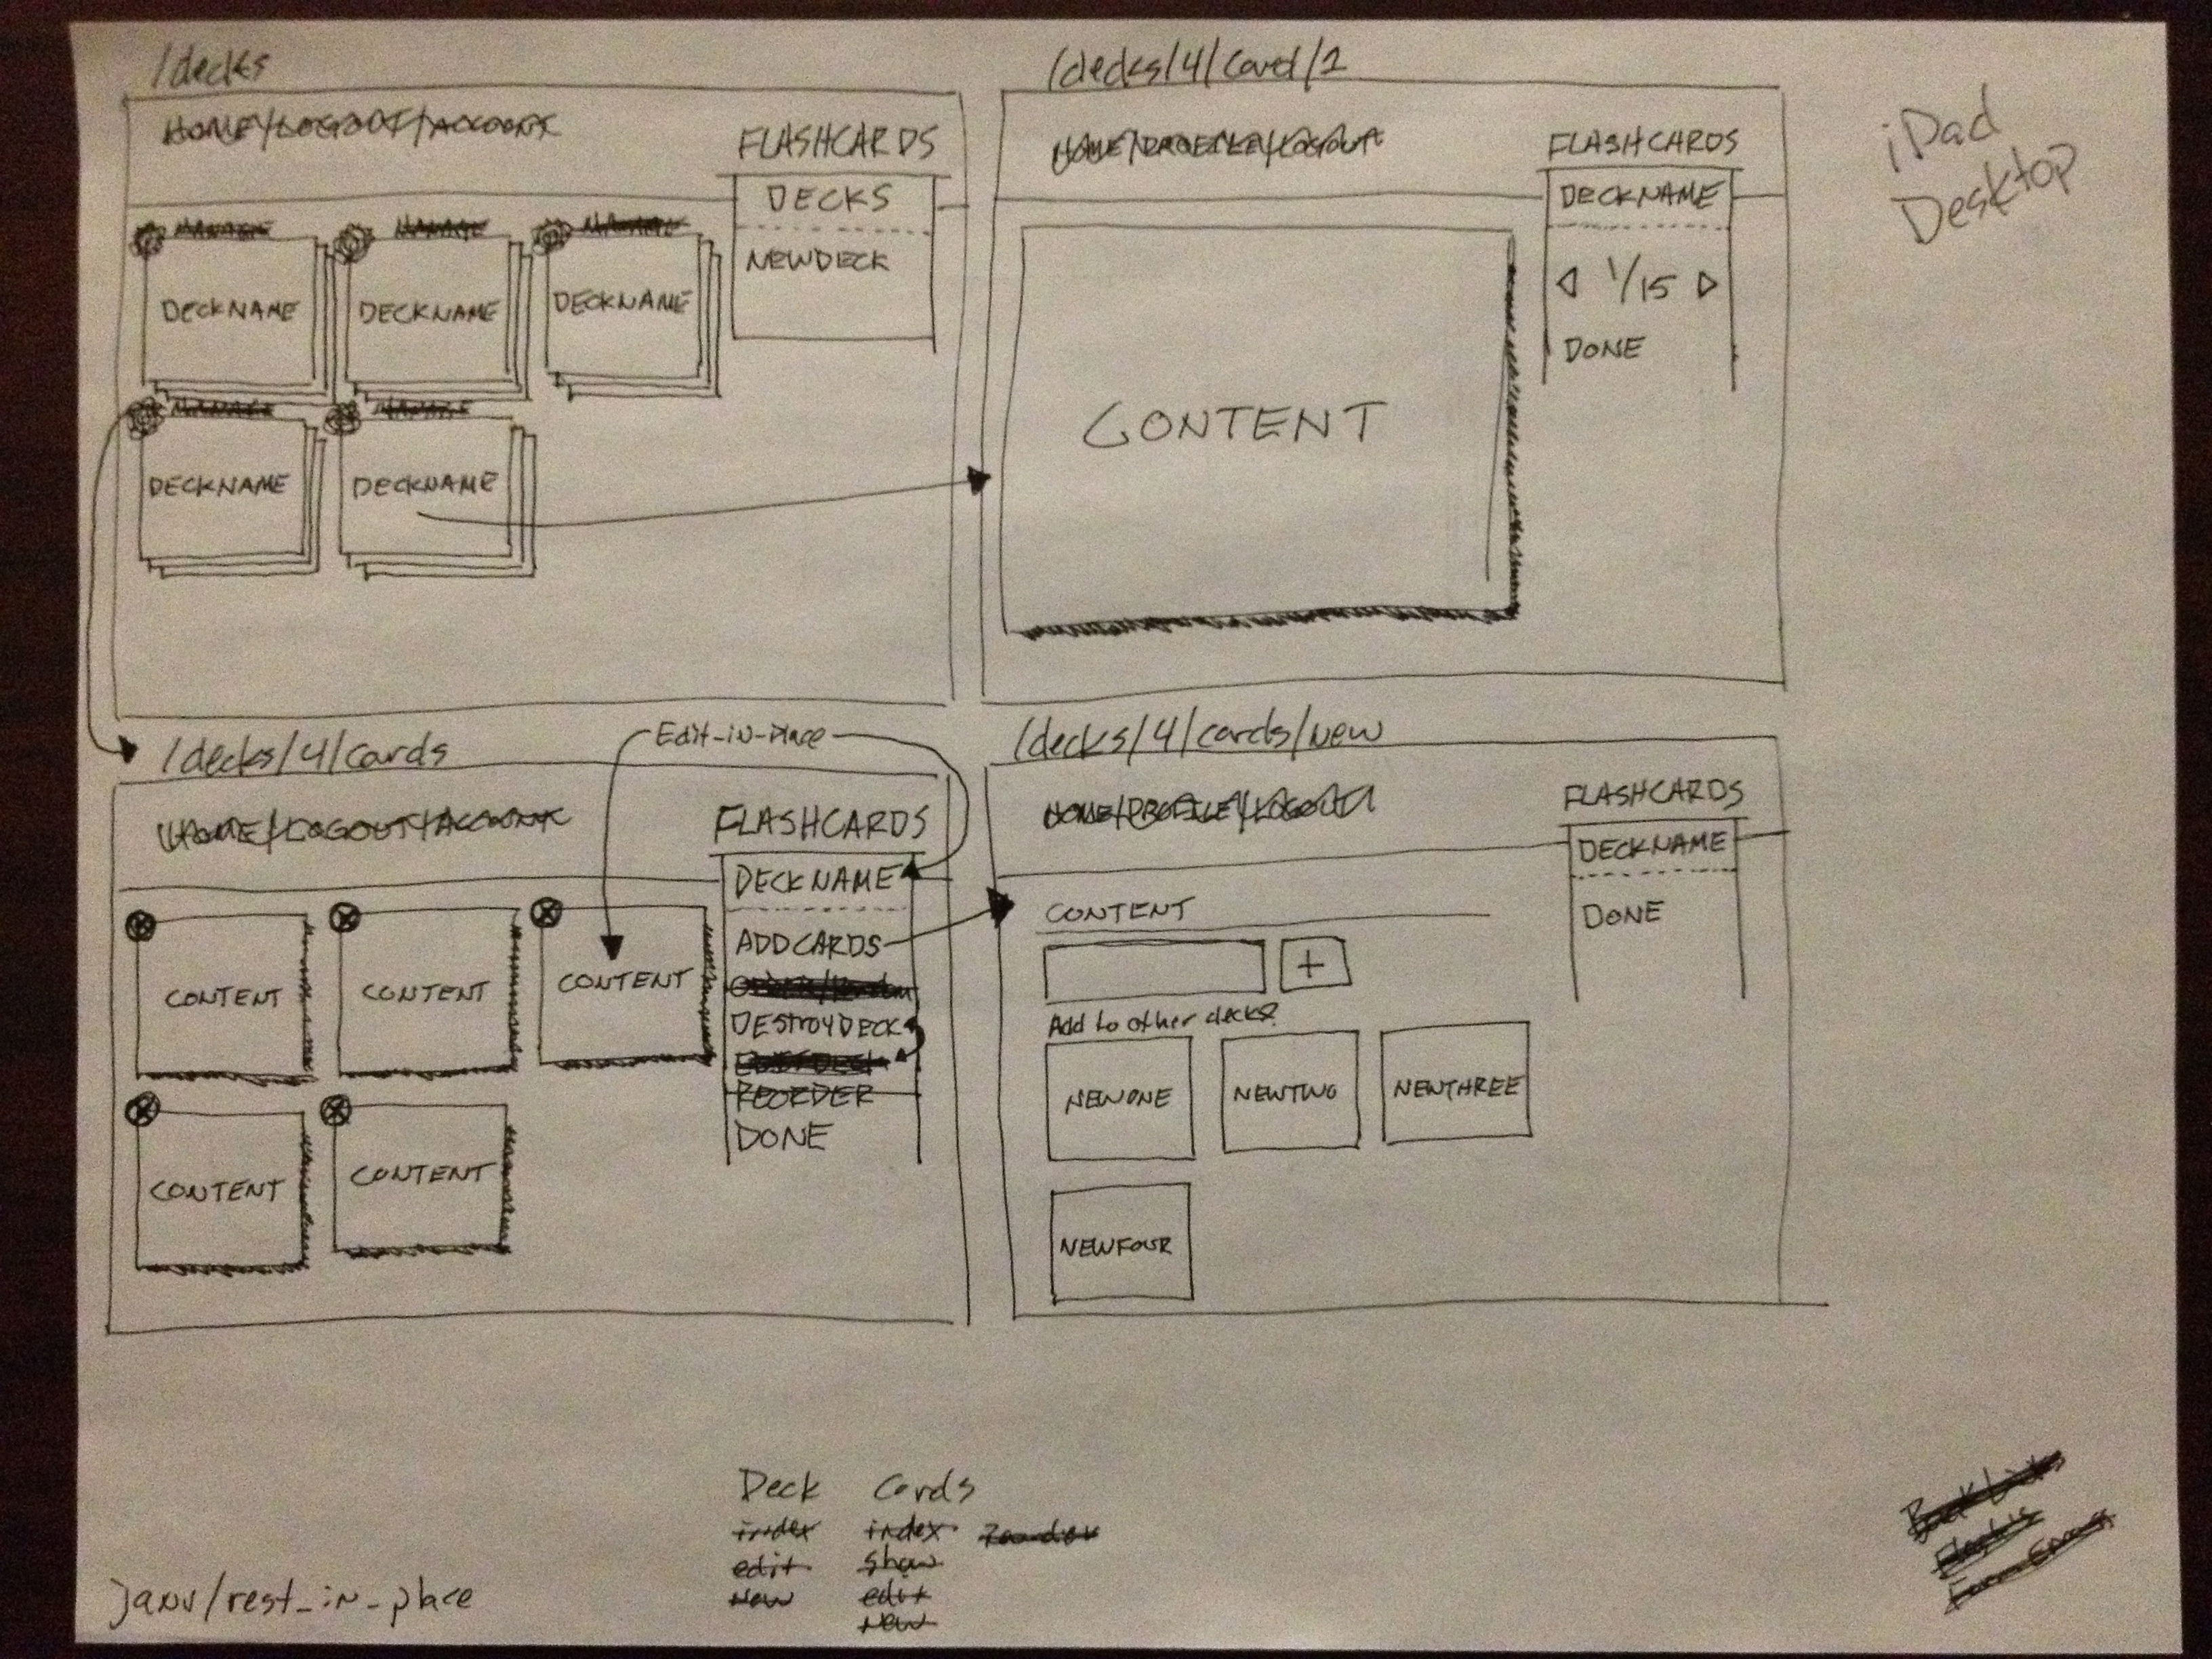 /decks
HOME/LOGOUT/ACCOUNT
FLASHCARDS
DECKS
NEWDECK
MANAGE
MANAGE
MANAGE
DECKNAME
DECKNAME
DECKNAME
MANAGE
MANAGE
DECKNAME
DECKNAME
/decks/4/card/1
HOME/PROFILE/LOGOUT
FLASHCARDS
DECKNAME
1/15
DONE
CONTENT
iPad
Desktop
Edit-in-Place
/decks/4/cards
HOME/LOGOUT/ACCOUNT
FLASHCARDS
DECKNAME
ADDCARDS
DESTROYDECK
REORDER
DONE
CONTENT
CONTENT
CONTENT
CONTENT
CONTENT
/decks/4/cards/new
HOME/PROFILE/LOGOUT
FLASHCARDS
DECKNAME
DONE
CONTENT
+
Add to other decks?
NEWONE
NEWTWO
NEWTHREE
NEWFOUR
Deck Cards
index index
edit show
new edit
new
janv/rest_in_place